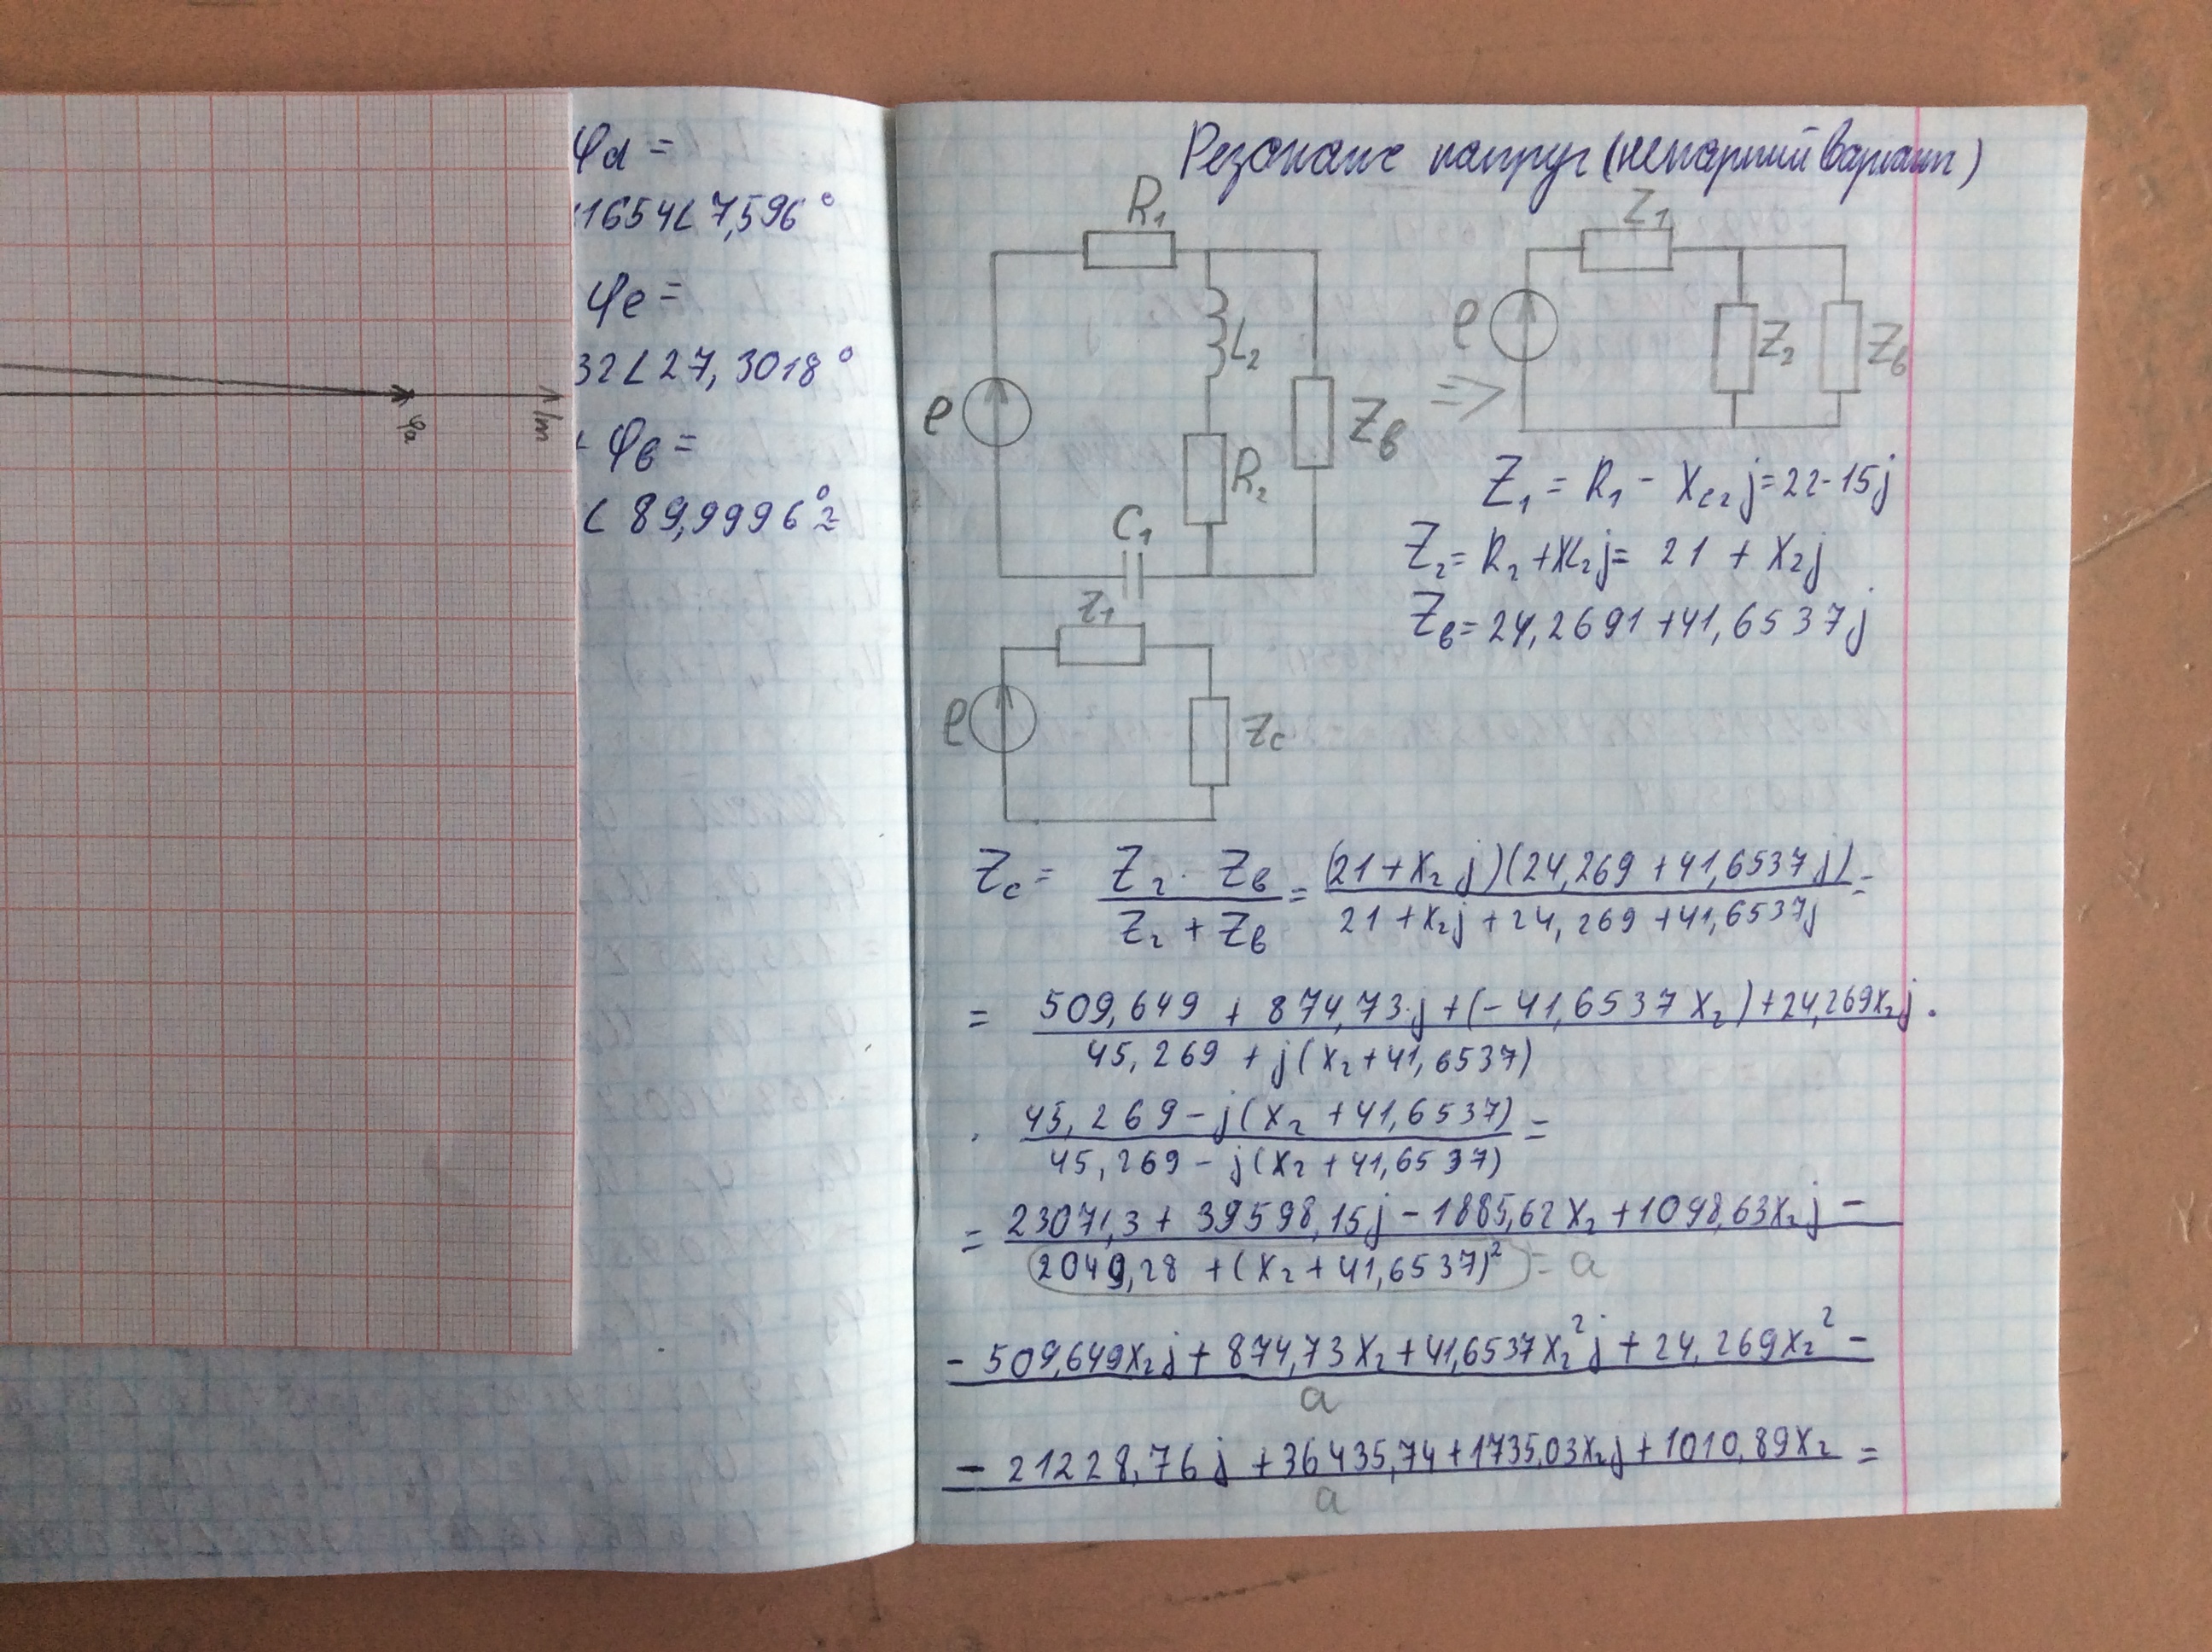 φd =
1654∠7,596°
φe =
32∠27,3018°
+ φв =
∠89,9996° ≈
φa
1m
Резонанс напруг (непарний варіант)
R₁
L₂
e
R₂
Zв
C₁
=>
Z₁
e
Z₂
Zв
Z₁ = R₁ - Xc₂j = 22-15j
Z₂ = R₂ + XL₂j = 21 + X₂j
Zв = 24,2691 + 41,6537j
Z₁
e
Zc
Zc = Z₂ · Zв / Z₂ + Zв = (21 + X₂j)(24,269 + 41,6537j) / 21 + X₂j + 24,269 + 41,6537j =
= 509,649 + 874,73j + (-41,6537X₂) + 24,269X₂j / 45,269 + j(X₂ + 41,6537) ·
· 45,269 - j(X₂ + 41,6537) / 45,269 - j(X₂ + 41,6537) =
= 23071,3 + 39598,15j - 1885,62X₂ + 1098,63X₂j - / 2049,28 + (X₂ + 41,6537)² = a
- 509,649X₂j + 874,73X₂ + 41,6537X₂²j + 24,269X₂² - / a
- 21228,76j + 36435,74 + 1735,03X₂j + 1010,89X₂ = / a